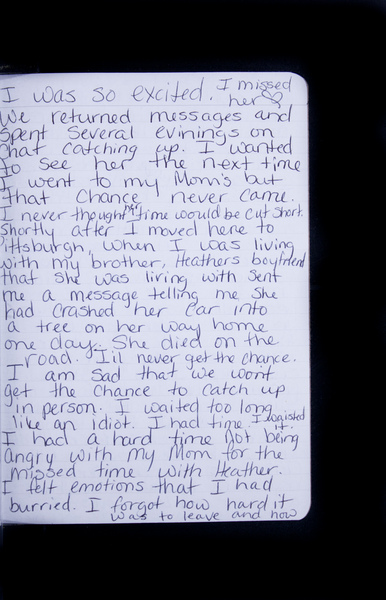 I was so excited. I missed
her ♡
We returned messages and
spent several evinings on
chat catching up. I wanted
to see her the next time
I went to my Mom's but
that chance never came.
I never thought her time would be cut short.
Shortly after I moved here to
Pittsburgh, when I was living
with my brother, Heathers boyfriend
that she was living with sent
me a message telling me she
had crashed her car into
a tree on her way home
one day. She died on the
road. I'll never get the chance.
I am sad that we won't
get the chance to catch up
in person. I waited too long
like an idiot. I had time. I waisted
it.
I had a hard time not being
angry with my Mom for the
missed time with Heather.
I felt emotions that I had
burried. I forgot how hard it
was to leave and how